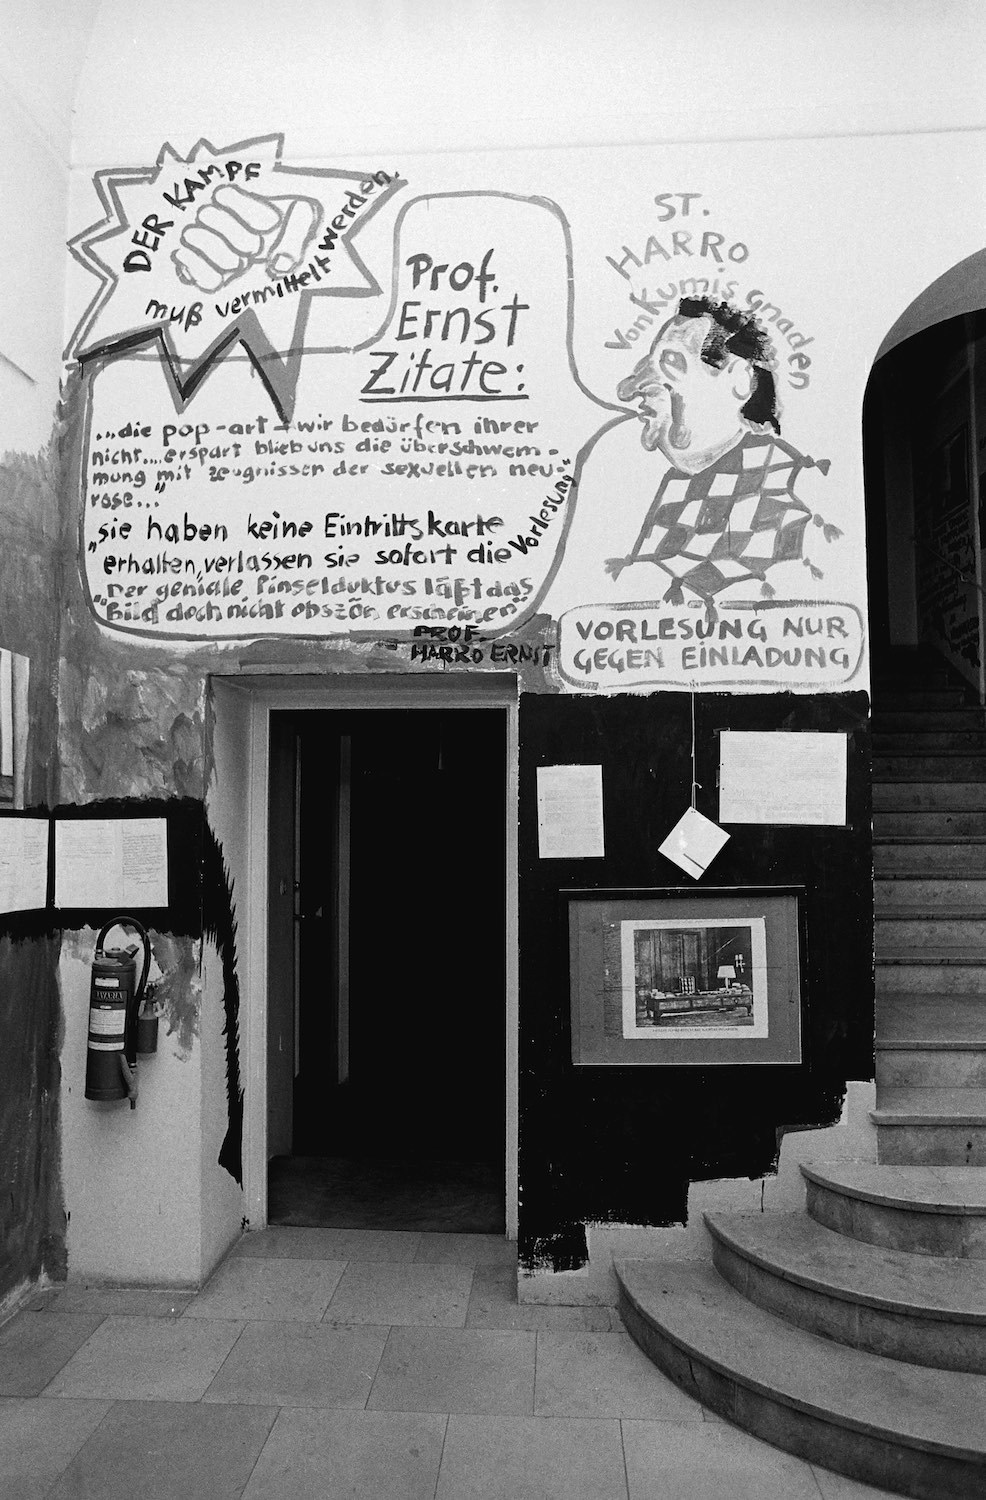 DER KAMPF
muß vermittelt werden.
Prof.
Ernst
Zitate:
...die pop-art - wir bedürfen ihrer
nicht....erspart blieb uns die überschwem-
mung mit zeugnissen der sexuellen neu-
rose..."
„sie haben keine Eintrittskarte
erhalten, verlassen sie sofort die Vorlesung"
"Der geniale Pinselduktus läßt das
Bild doch nicht obszön erscheinen"
PROF.
HARRO ERNST
ST.
HARRO
Von Kumis gnaden
VORLESUNG NUR
GEGEN EINLADUNG